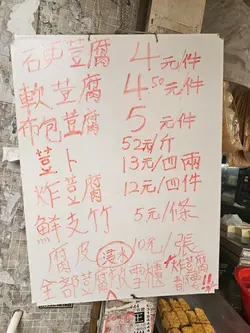 石更荳腐 4元件
軟荳腐 4.50元件
布包荳腐 5元件
52元/斤
荳卜 13元/四兩
炸荳腐 12元/四件
鮮支竹 5元/條
腐皮 (濕水) 10元/張
全部荳腐放雪櫃
*炸荳腐